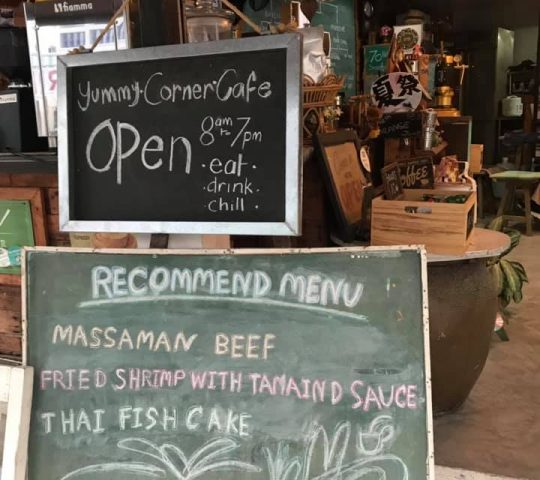 fiamma
Yummy·Corner·Cafe
Open
8am to 7pm
·eat·
·drink·
·chill·
夏祭
COFFEE
RECOMMEND MENU
MASSAMAN BEEF
FRIED SHRIMP WITH TAMAIND SAUCE
THAI FISH CAKE